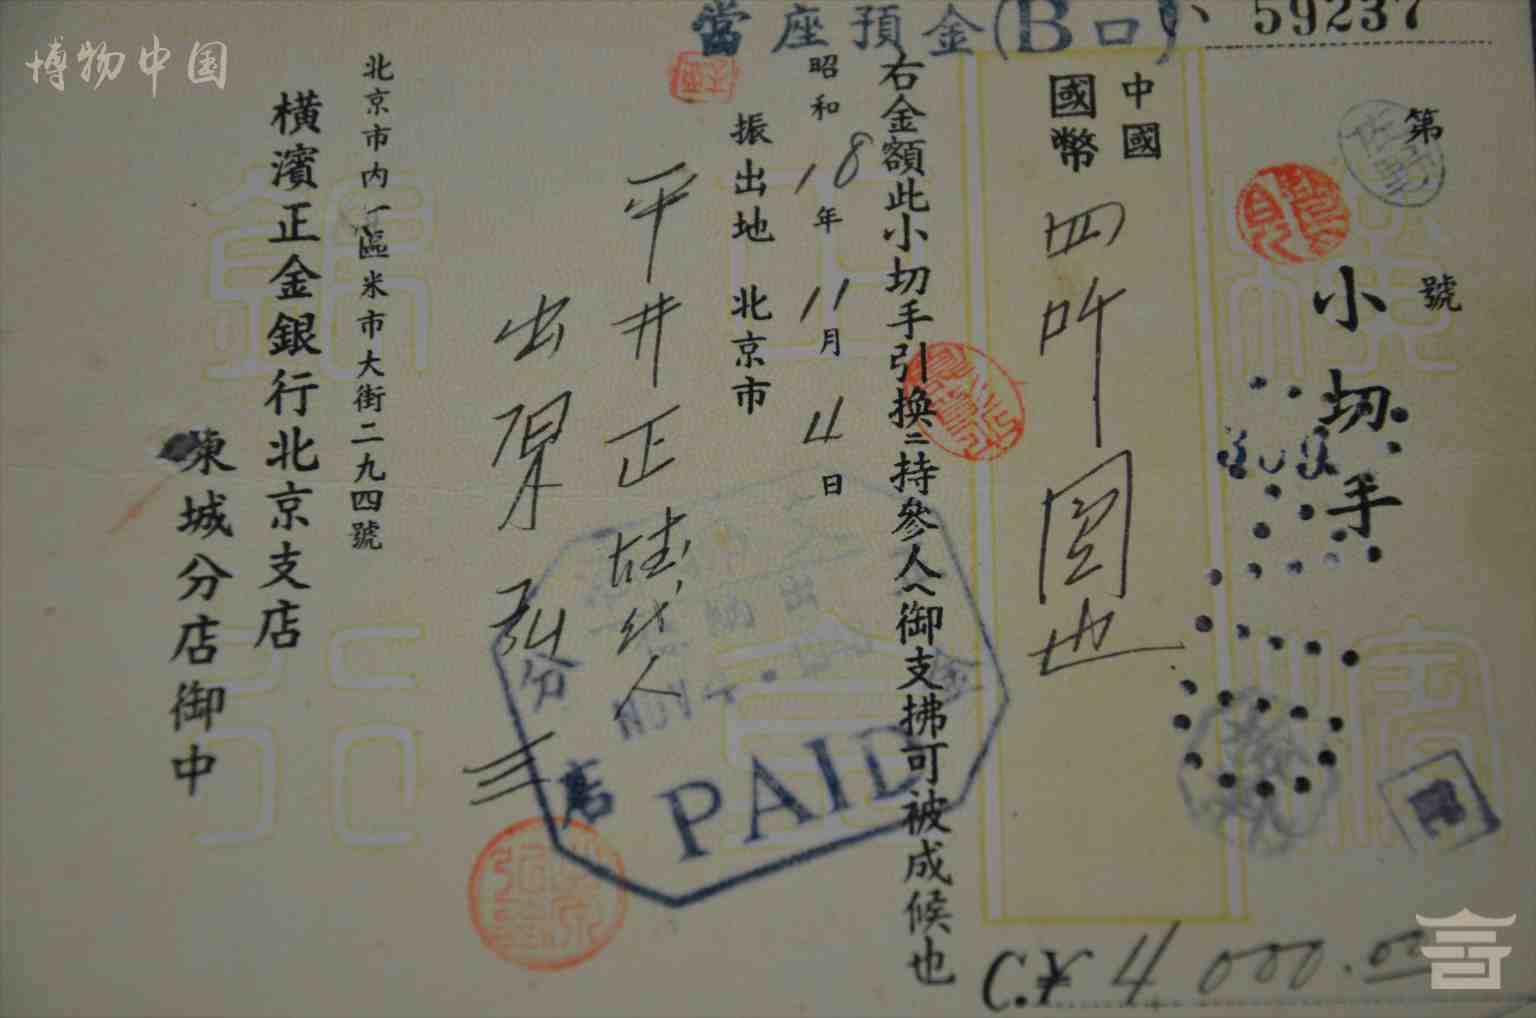 當座預金(B口)
59237
第 號
小切手
中國
國幣
四阡圓也
C.¥ 4000.00
右金額此小切手引換ニ持參人へ御支拂可被成候也
昭和18年11月4日
振出地 北京市
平井正
代人
出原弘三
北京市內一區米市大街二九四號
橫濱正金銀行北京支店
東城分店御中
分
店
金
出納
NOV
PAID
博物中国